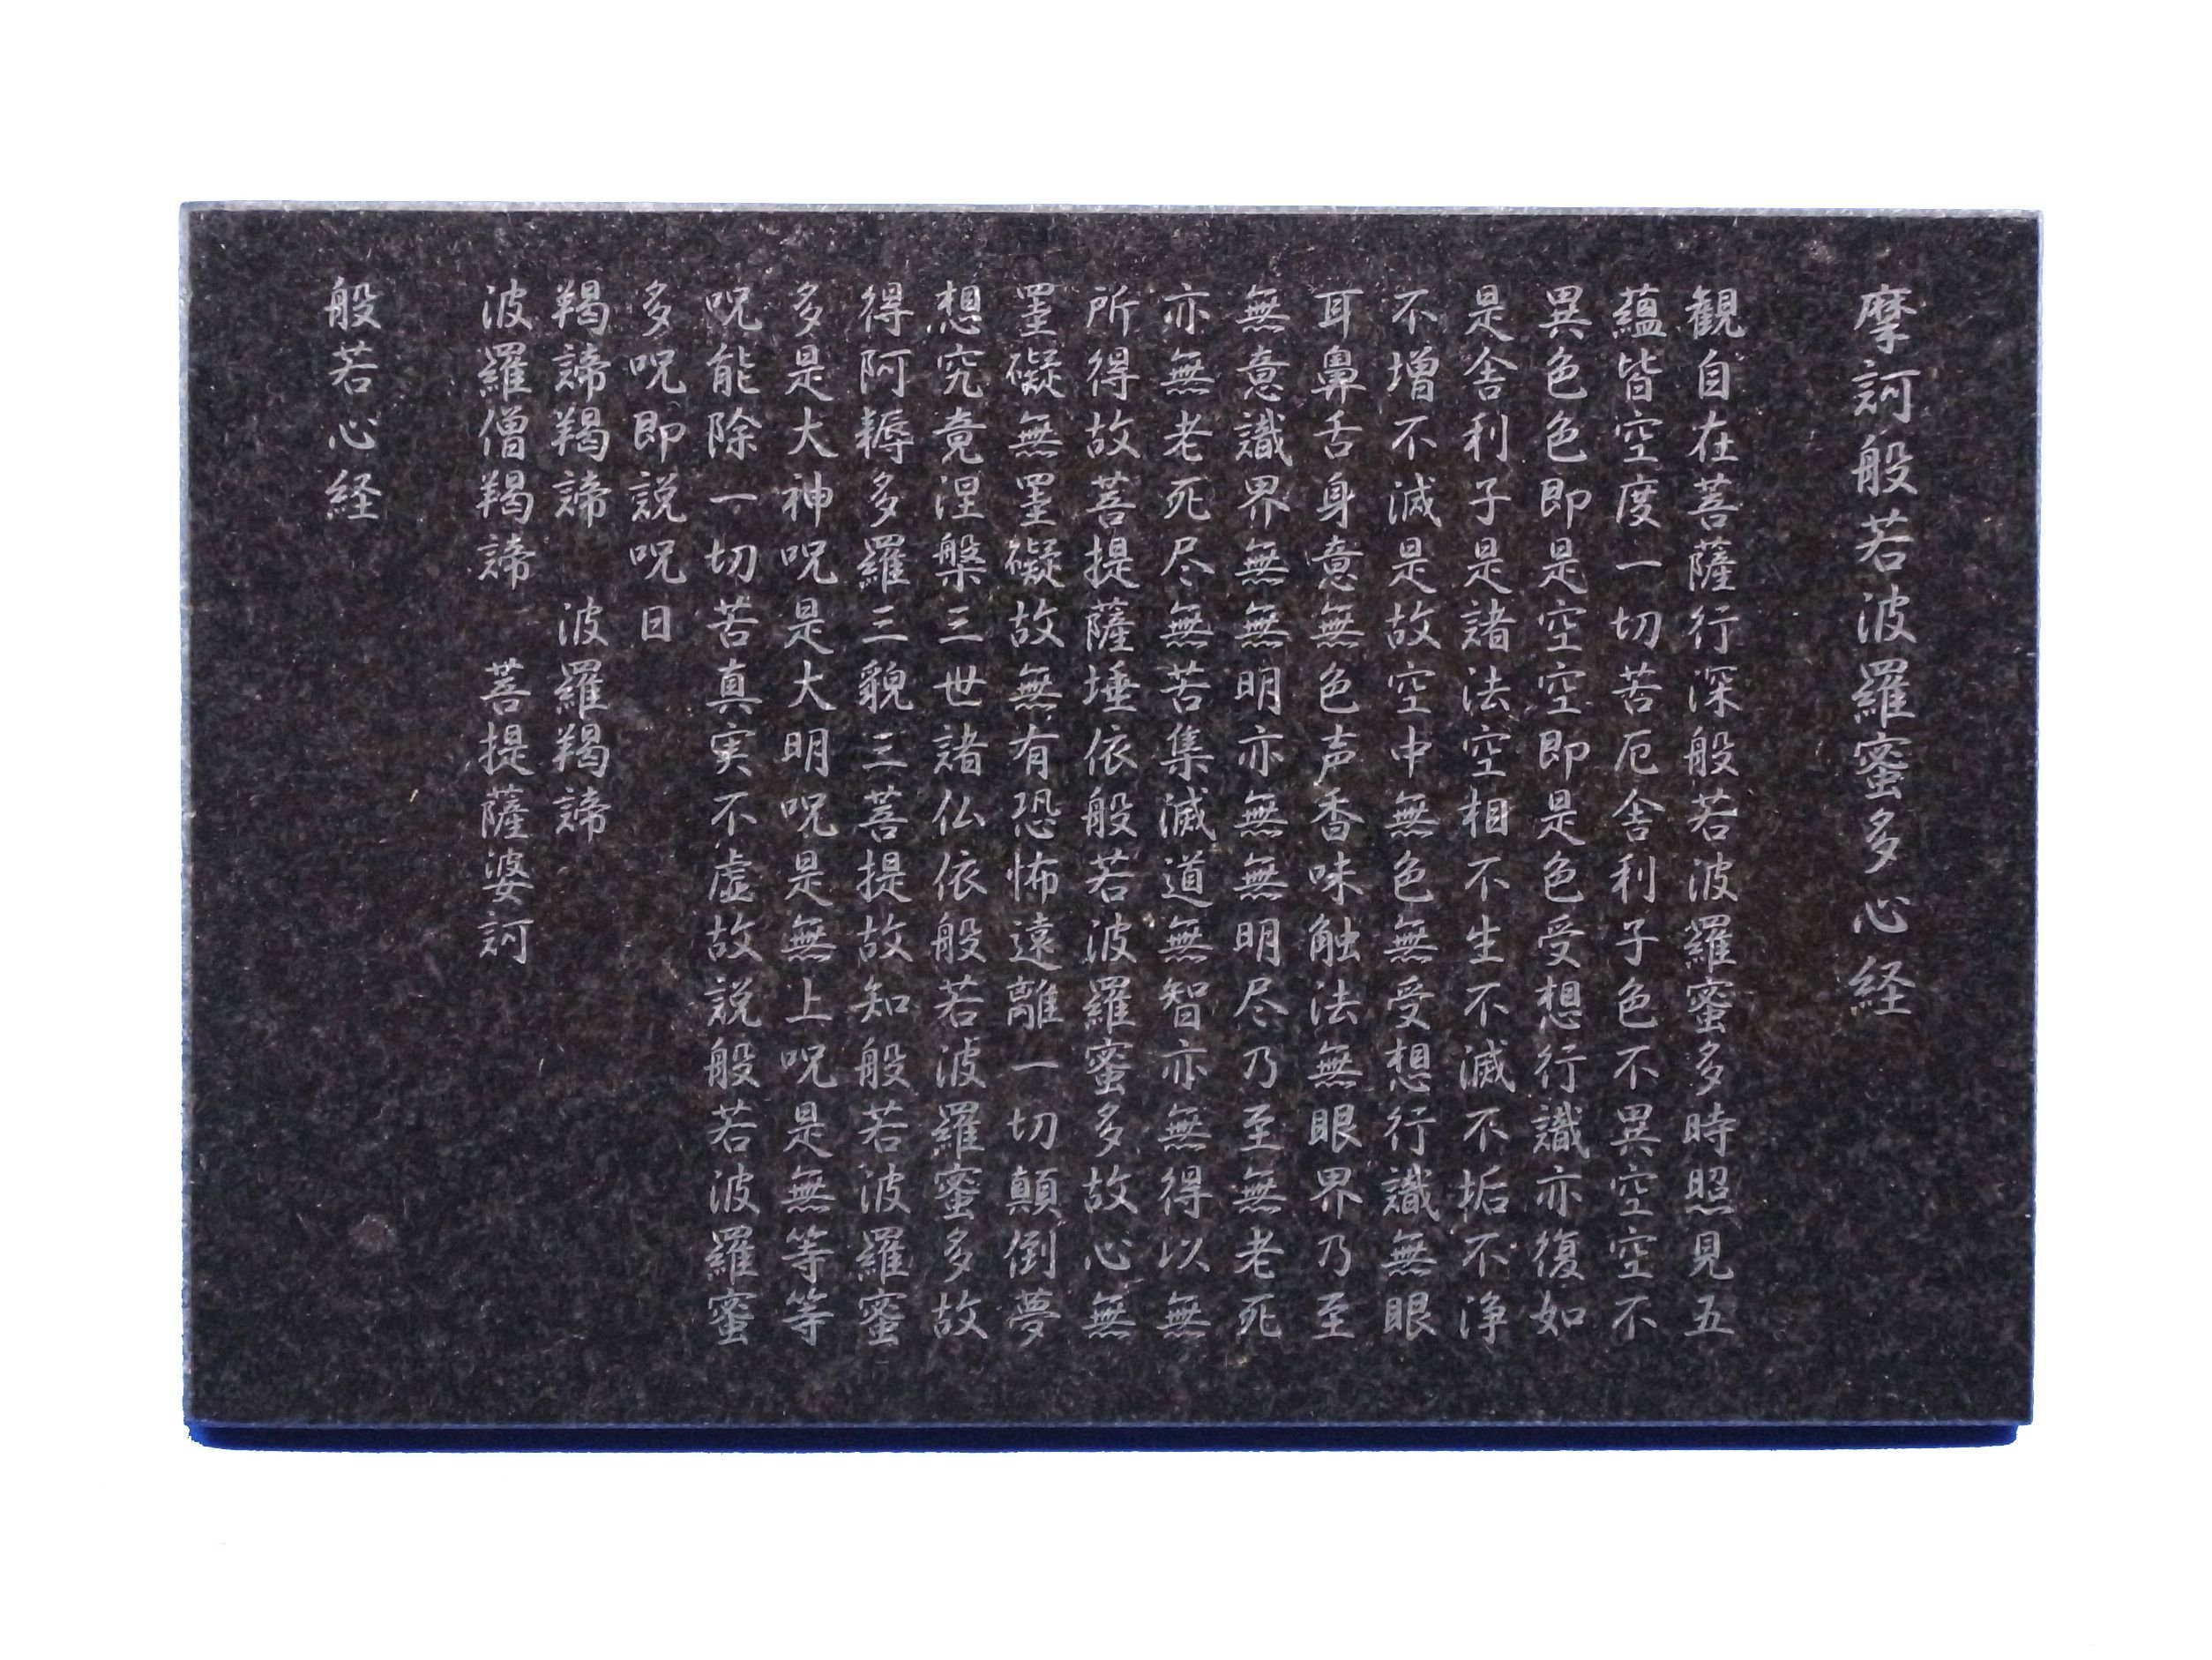 摩訶般若波羅蜜多心経
観自在菩薩行深般若波羅蜜多時照見五
蘊皆空度一切苦厄舎利子色不異空空不
異色色即是空空即是色受想行識亦復如
是舎利子是諸法空相不生不滅不垢不浄
不増不滅是故空中無色無受想行識無眼
耳鼻舌身意無色声香味触法無眼界乃至
無意識界無無明亦無無明尽乃至無老死
亦無老死尽無苦集滅道無智亦無得以無
所得故菩提薩埵依般若波羅蜜多故心無
罣礙無罣礙故無有恐怖遠離一切顛倒夢
想究竟涅槃三世諸仏依般若波羅蜜多故
得阿耨多羅三藐三菩提故知般若波羅蜜
多是大神呪是大明呪是無上呪是無等等
呪能除一切苦真実不虚故説般若波羅蜜
多呪即説呪曰
羯諦羯諦　波羅羯諦
波羅僧羯諦　菩提薩婆訶
般若心経